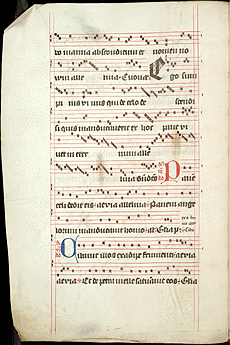 to manna absconditum et nomen no
vum alle luia Euouae Ego sum
pa nis vi vus qui de celo de scendi
si quis manducaverit ex hoc pane vi
vet in eter num alle
luia Pane
celi dedit eis aevia alleluia Panem ange
lorum manducavit homo al Glia p
Cibavit illos ex adipe frumenti aevia
aevia Et de petra melle saturavit eos Glia